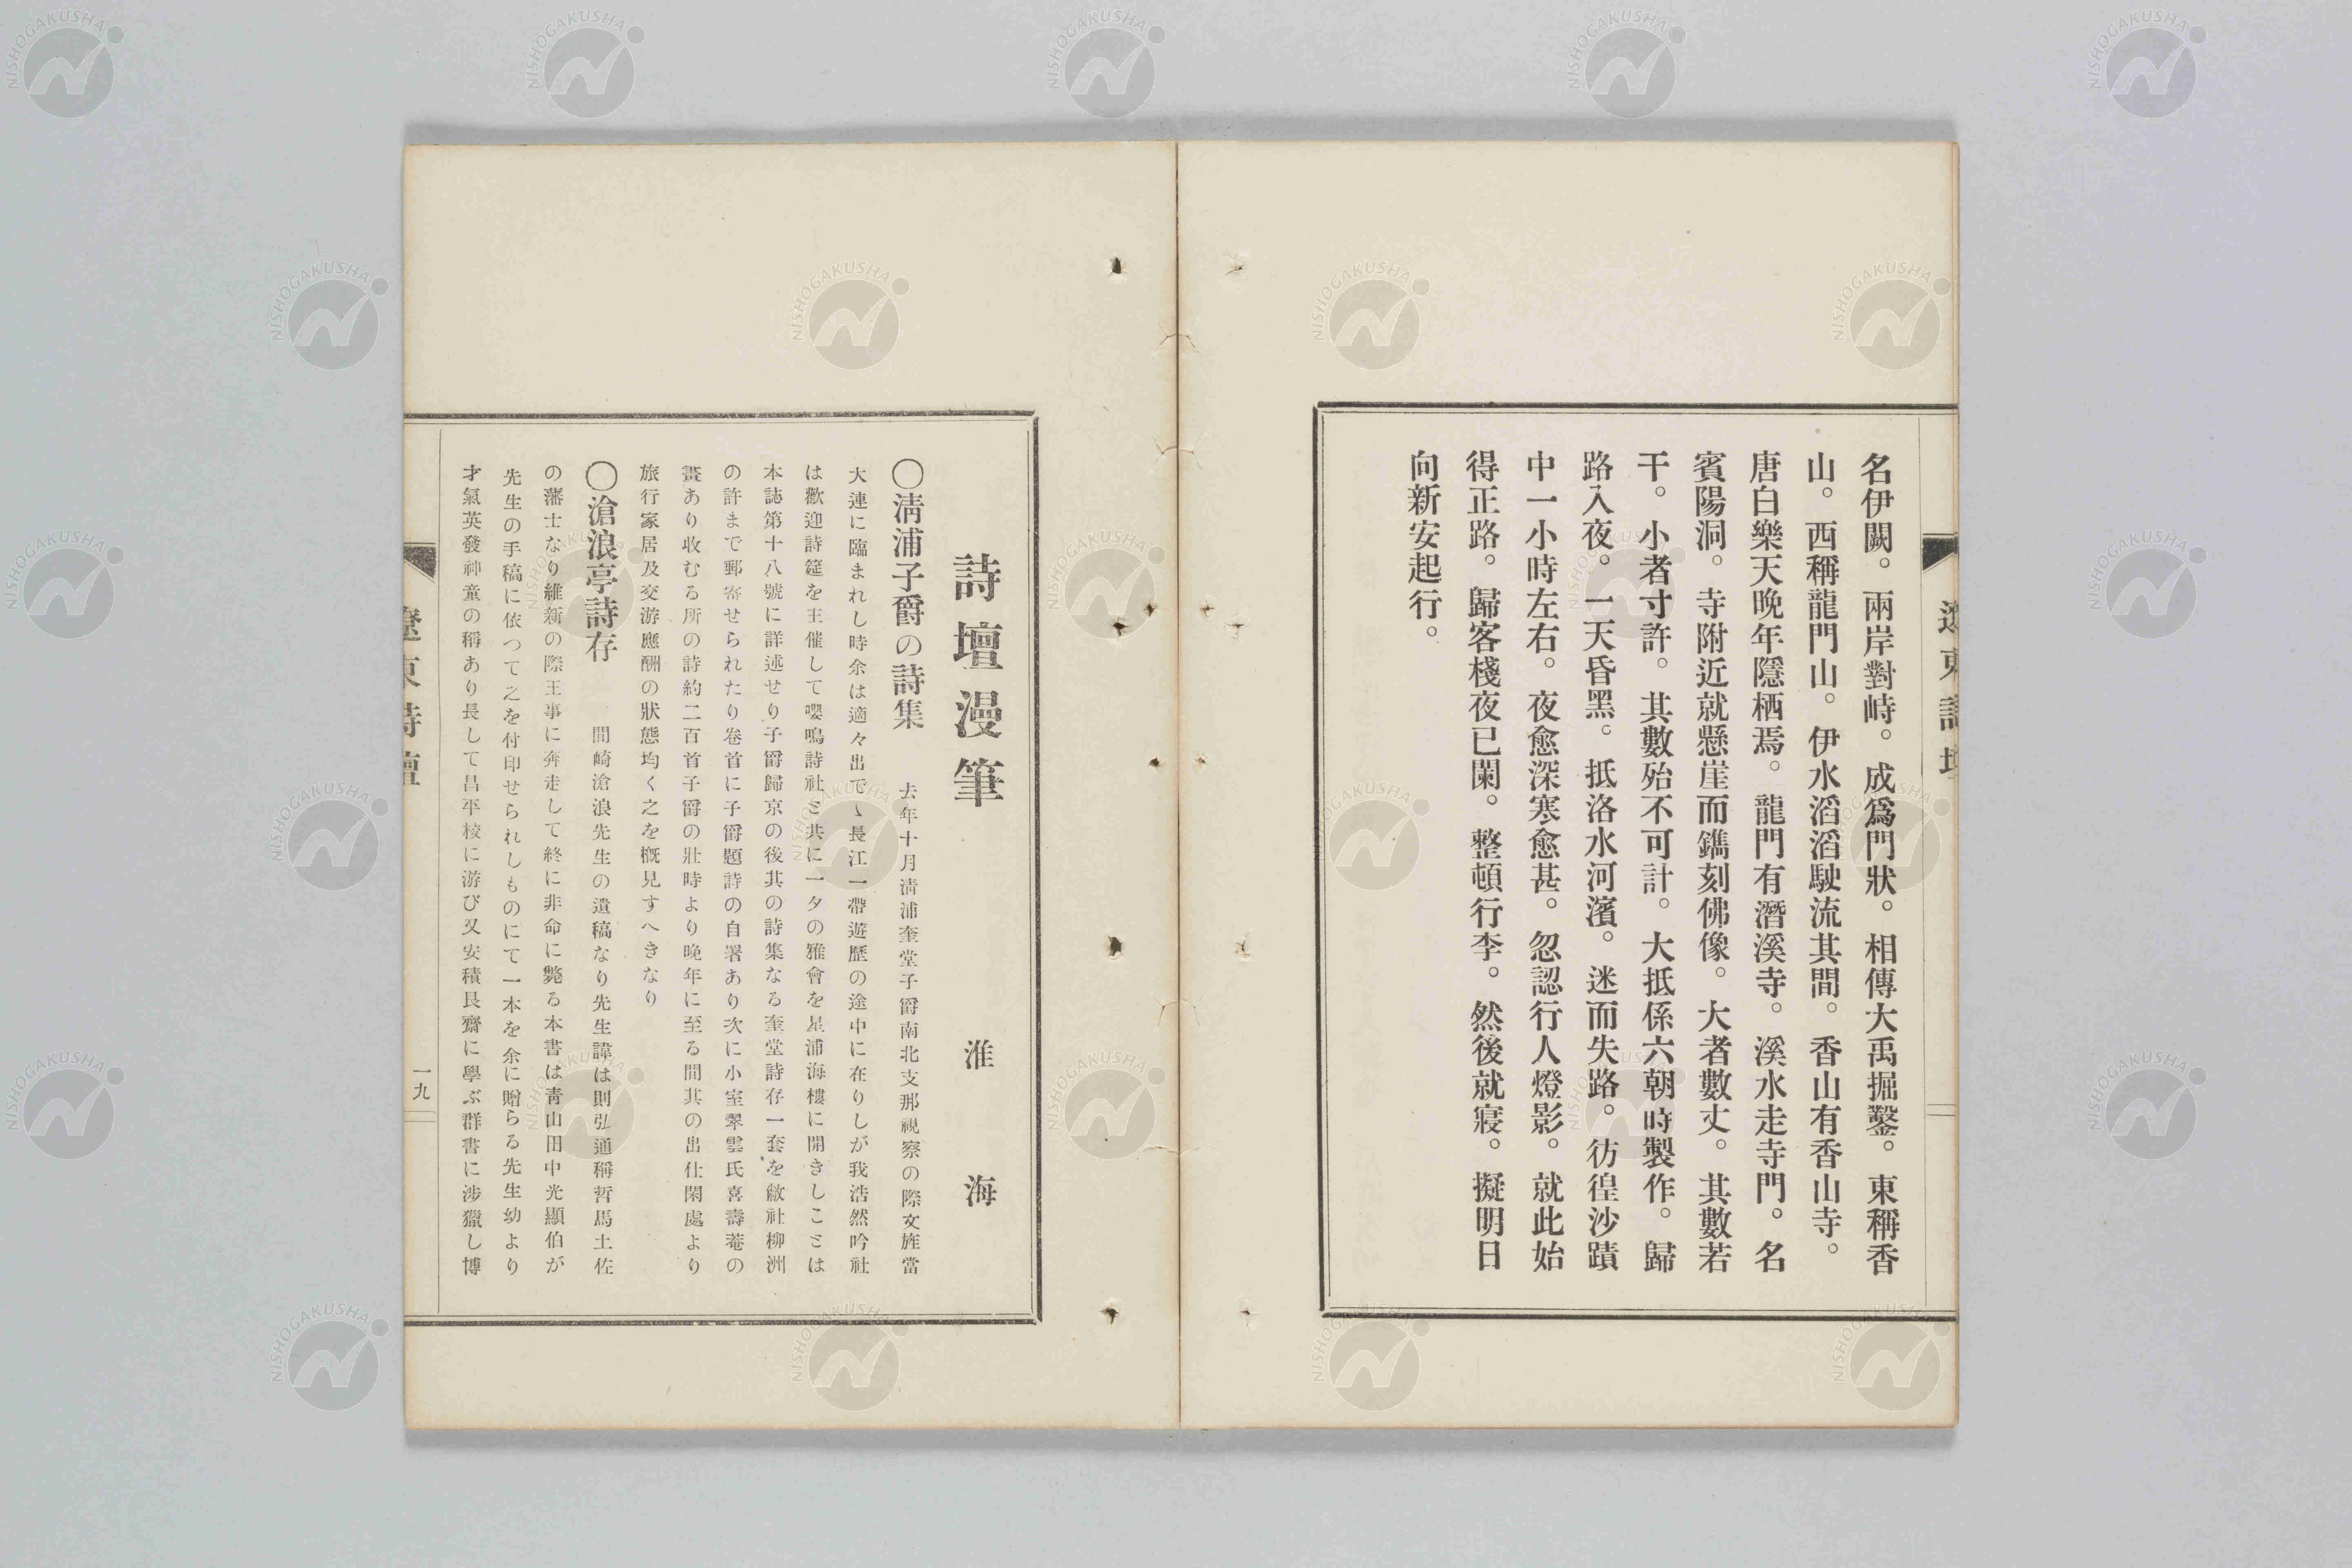 名伊闕。兩岸對峙。成爲門狀。相傳大禹掘鑿。東稱香
山。西稱龍門山。伊水滔滔駛流其間。香山有香山寺。
唐白樂天晩年隱栖焉。龍門有潛溪寺。溪水走寺門。名
賓陽洞。寺附近就懸崖而鐫刻佛像。大者數丈。其數若
干。小者寸許。其數殆不可計。大抵係六朝時製作。歸
路入夜。一天昏黑。抵洛水河濱。迷而失路。彷徨沙蹟
中一小時左右。夜愈深寒愈甚。忽認行人燈影。就此始
得正路。歸客棧夜已闌。整頓行李。然後就寢。擬明日
向新安起行。
詩壇漫筆
淮海
〇淸浦子爵の詩集 去年十月淸浦奎堂子爵南北支那視察の際文旌當
大連に臨まれし時余は適々出でゝ長江一帶遊歷の途中に在りしが我浩然吟社
は歡迎詩筵を主催して嚶鳴詩社と共に一夕の雅會を星浦海樓に開きしことは
本誌第十八號に詳述せり子爵歸京の後其の詩集なる奎堂詩存一套を敝社柳洲
の許まで郵寄せられたり卷首に子爵題詩の自署あり次に小室翠雲氏喜壽菴の
畫あり收むる所の詩約二百首子爵の壯時より晩年に至る間其の出仕閑處より
旅行家居及交游應酬の狀態均く之を槪見すへきなり
〇滄浪亭詩存 間崎滄浪先生の遺稿なり先生諱は則弘通稱哲馬土佐
の藩士なり維新の際王事に奔走して終に非命に斃る本書は靑山田中光顯伯が
先生の手稿に依つて之を付印せられしものにて一本を余に贈らる先生幼より
才氣英發神童の稱あり長して昌平校に游び又安積艮齋に學ぶ群書に涉獵し博
遼東詩壇
一九